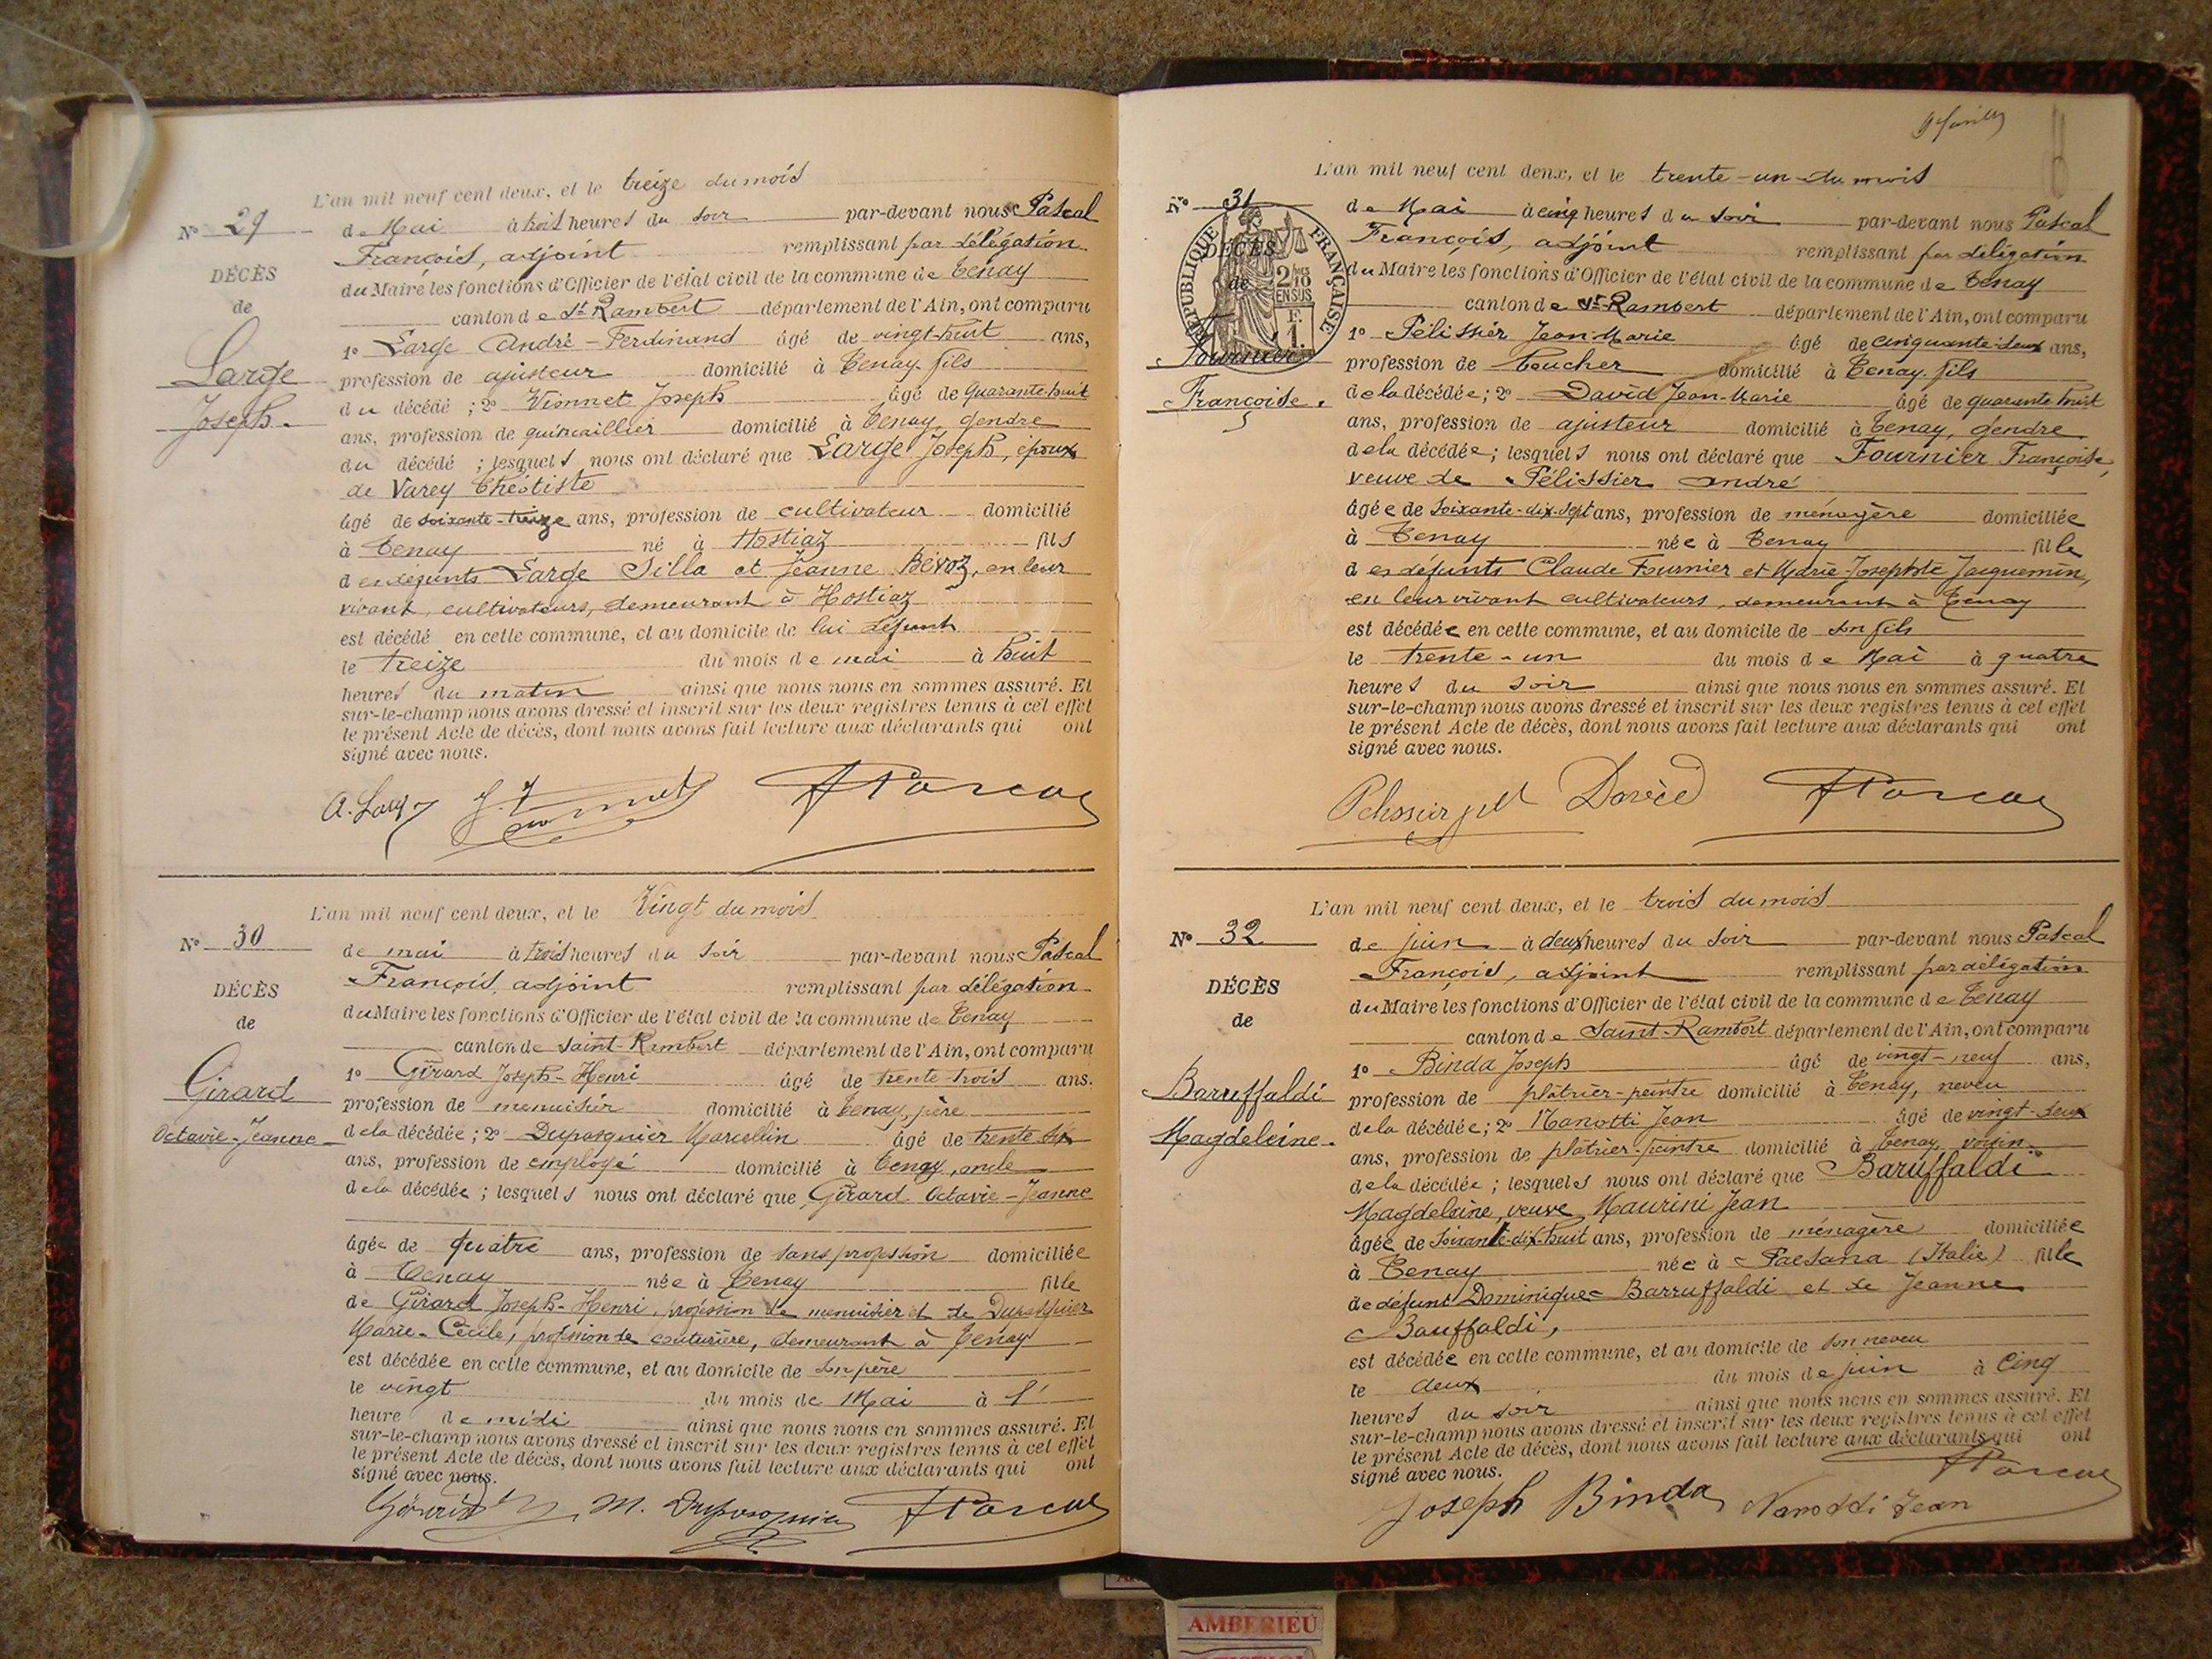 L'an mil neuf cent deux, et le treize du mois
N° 29
de Mai à trois heures du soir par-devant nous Pascal
François, adjoint remplissant par délégation
du Maire les fonctions d'Officier de l'état civil de la commune de Tenay
canton de St Rambert département de l'Ain, ont comparu
DÉCÈS
de
Large
Joseph.
1° Large André-Ferdinand âgé de vingt-huit ans,
profession de ajusteur domicilié à Tenay fils
du décédé ; 2° Vionnet Joseph âgé de quarante-huit
ans, profession de quincaillier domicilié à Tenay, gendre
du décédé ; lesquels nous ont déclaré que Large Joseph, époux
de Varey Théotiste
âgé de soixante-treize ans, profession de cultivateur domicilié
à Tenay né à Hostiaz fils
des défunts Large Silla et Jeanne Bévoz, en leur
vivant cultivateurs, demeurant à Hostiaz
est décédé en cette commune, et au domicile de lui défunt
le treize du mois de mai à huit
heures du matin ainsi que nous nous en sommes assuré. Et
sur-le-champ nous avons dressé et inscrit sur les deux registres tenus à cet effet
le présent Acte de décès, dont nous avons fait lecture aux déclarants qui ont
signé avec nous.
A. Large
L'an mil neuf cent deux, et le Vingt du mois
N° 30
de mai à trois heures du soir par-devant nous Pascal
François, adjoint remplissant par délégation
du Maire les fonctions d'Officier de l'état civil de la commune de Tenay
canton de Saint-Rambert département de l'Ain, ont comparu
DÉCÈS
de
Girard
Octavie-Jeanne
1° Girard Joseph-Henri âgé de trente-trois ans.
profession de menuisier domicilié à Tenay, père
de la décédée ; 2° Dupasquier Marcellin âgé de trente six
ans, profession de employé domicilié à Tenay, oncle
de la décédée ; lesquels nous ont déclaré que Girard Octavie-Jeanne
âgée de quatre ans, profession de sans profession domiciliée
à Tenay née à Tenay fille
de Girard Joseph-Henri, profession de menuisier et de Dupasquier
Marie-Cécile, profession de couturière, demeurant à Tenay
est décédée en cette commune, et au domicile de son père
le vingt du mois de Mai à l'
heure de midi ainsi que nous nous en sommes assuré. Et
sur-le-champ nous avons dressé et inscrit sur les deux registres tenus à cet effet
le présent Acte de décès, dont nous avons fait lecture aux déclarants qui ont
signé avec nous.
Girard M. Dupasquier FPascal
L'an mil neuf cent deux, et le trente-un du mois
N° 31
de Mai à cinq heures du soir par-devant nous Pascal
François, adjoint remplissant par délégation
du Maire les fonctions d'Officier de l'état civil de la commune de Tenay
canton de St-Rambert département de l'Ain, ont comparu
RÉPUBLIQUE FRANÇAISE
2/10
EN SUS
F.
1.
DÉCÈS
de
Fournier
Françoise.
1° Pélissier Jean-Marie âgé de cinquante-deux ans,
profession de boucher domicilié à Tenay fils
de la décédée ; 2° David Jean-Marie âgé de quarante huit
ans, profession de ajusteur domicilié à Tenay, gendre
de la décédée ; lesquels nous ont déclaré que Fournier Françoise,
veuve de Pélissier André
âgée de soixante-dix-sept ans, profession de ménagère domiciliée
à Tenay née à Tenay fille
des défunts Claude Fournier et Marie-Josephte Jacquemin,
en leur vivant cultivateurs, demeurant à Tenay
est décédée en cette commune, et au domicile de son fils
le trente-un du mois de Mai à quatre
heures du soir ainsi que nous nous en sommes assuré. Et
sur-le-champ nous avons dressé et inscrit sur les deux registres tenus à cet effet
le présent Acte de décès, dont nous avons fait lecture aux déclarants qui ont
signé avec nous.
Pelissier David FPascal
L'an mil neuf cent deux, et le trois du mois
N° 32
de juin à deux heures du soir par-devant nous Pascal
François, adjoint remplissant par délégation
du Maire les fonctions d'Officier de l'état civil de la commune de Tenay
canton de Saint-Rambert département de l'Ain, ont comparu
DÉCÈS
de
Baruffaldi
Magdeleine.
1° Binda Joseph âgé de vingt-neuf ans,
profession de plâtrier-peintre domicilié à Tenay, neveu
de la décédée ; 2° Nanotti Jean âgé de vingt-deux
ans, profession de plâtrier-peintre domicilié à Tenay, voisin
de la décédée ; lesquels nous ont déclaré que Baruffaldi
Magdeleine, veuve Maurini Jean
âgée de soixante-dix-huit ans, profession de ménagère domiciliée
à Tenay née à Paesana (Italie) fille
de défunt Dominique Barruffaldi et de Jeanne
Bauffaldi,
est décédée en cette commune, et au domicile de son neveu
le deux du mois de juin à cinq
heures du soir ainsi que nous nous en sommes assuré. Et
sur-le-champ nous avons dressé et inscrit sur les deux registres tenus à cet effet
le présent Acte de décès, dont nous avons fait lecture aux déclarants qui ont
signé avec nous.
FPascal
Joseph Binda Nanotti Jean
AMBERIEU